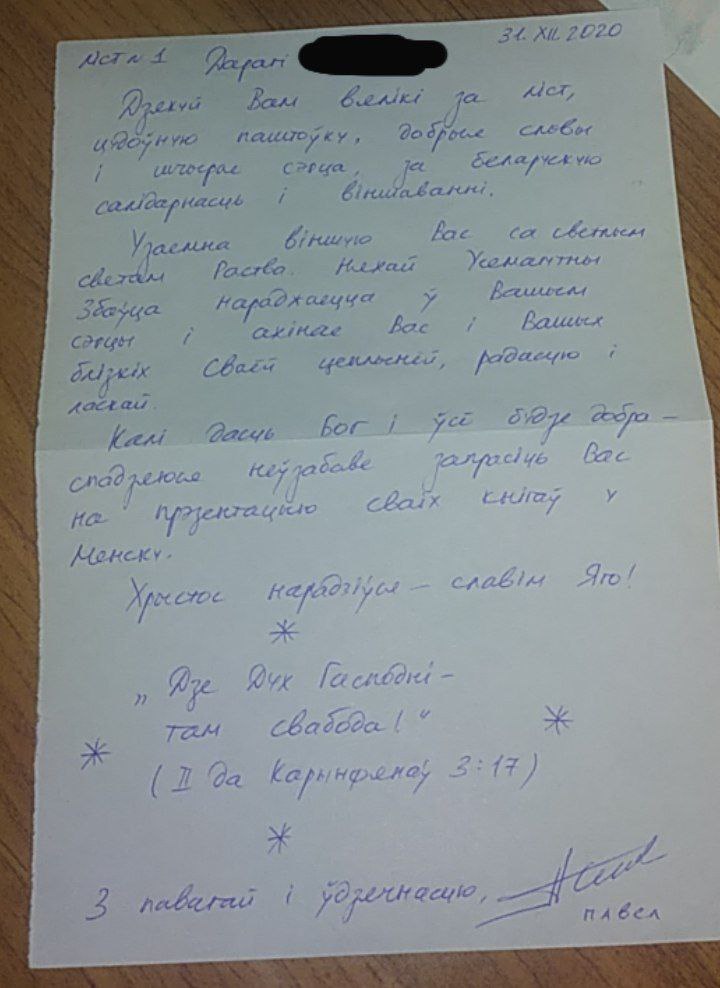 ліст n 1 Дарагі 31. XII. 2020
Дзякуй Вам вялікі за ліст,
цудоўную паштоўку, добрыя словы
і шчырае сэрца, за беларускую
салідарнасць і віншаванні.
Узаемна віншую Вас са светлым
святам Раства. Няхай Усемагутны
Збаўца нараджаецца ў Вашым
сэрцы і ахінае Вас і Вашых
блізкіх Сваёй цеплынёй, радасцю і
ласкай.
Калі дасць Бог і ўсё будзе добра –
спадзяюся неўзабаве запрасіць Вас
на прэзентацыю сваіх кнігаў у
Менску.
Хрыстос нарадзіўся – славім Яго!
„Дзе Дух Гасподні –
там свабода!“
(II да Карынфянаў 3:17)
З павагай і ўдзячнасцю,
ПАВЕЛ